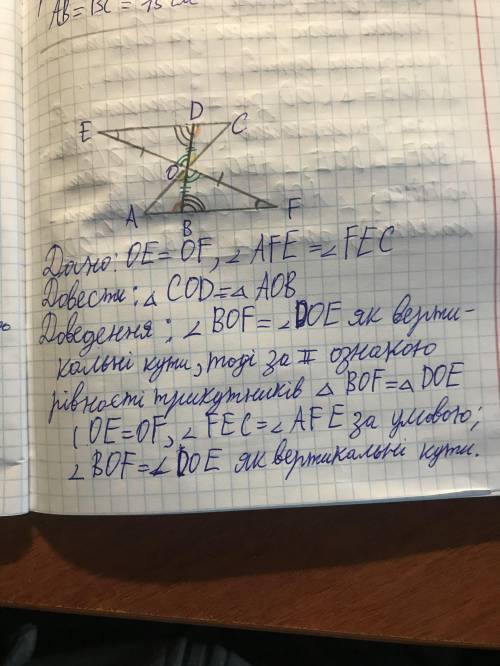 AB = BC = 15 см
D
E
C
O
A
F
B
Дано: OE = OF, ∠ AFE = ∠ FEC
Довести: △ COD = △ AOB
Доведення: ∠ BOF = ∠ DOE як верти-
кальні кути, тоді за II ознакою
рівності трикутників △ BOF = △ DOE
(OE = OF, ∠ FEC = ∠ AFE за умовою;
∠ BOF = ∠ DOE як вертикальні кути.